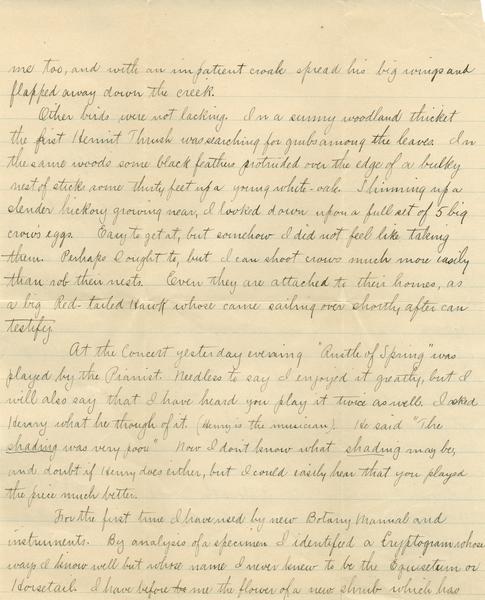 me too, and with an impatient croak spread his big wings and
flapped away down the creek.
Other birds were not lacking. In a sunny woodland thicket
the first Hermit Thrush was searching for grubs among the leaves. In
the same woods some black feathers protruded over the edge of a bulky
nest of sticks some thirty feet up a young white-oak. Shinning up a
slender hickory growing near, I looked down upon a full set of 5 big
crow's eggs. Easy to get at, but somehow I did not feel like taking
them. Perhaps I ought to, but I can shoot crows much more easily
than rob their nests. Even they are attached to their homes, as
a big Red-tailed Hawk whose came sailing over shortly after can
testify.
At the Concert yesterday evening "Rustle of Spring" was
played by the Pianist. Needless to say I enjoyed it greatly, but I
will also say that I have heard you play it twice as well. I asked
Henry what he though of it. (Henry is the musician). He said "The
shading was very poor" Now I don't know what shading may be,
and doubt if Henry does either, but I could easily hear that you played
the piece much better.
For the first time I have used by new Botany Manual and
instruments. By analysis of a specimen I identified a Cryptogram whose
ways I know well but whose name I never knew to be the Equisetum or
Horsetail. I have before me the flower of a new shrub which has